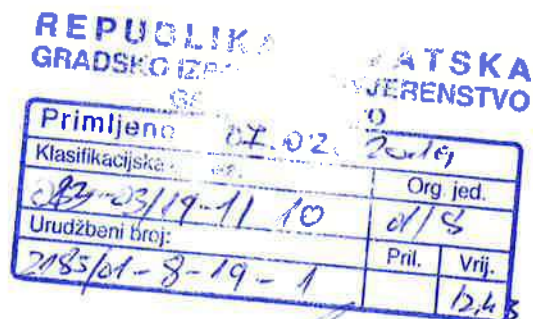 REPUBLIKA HRVATSKA
GRADSKO IZBORNO POVJERENSTVO
Primljeno 07.02.2019
Klasifikacijska
Org. jed.
03/19-11 10
01/8
Urudžbeni broj:
Pril. Vrij.
2185/01-8-19-1